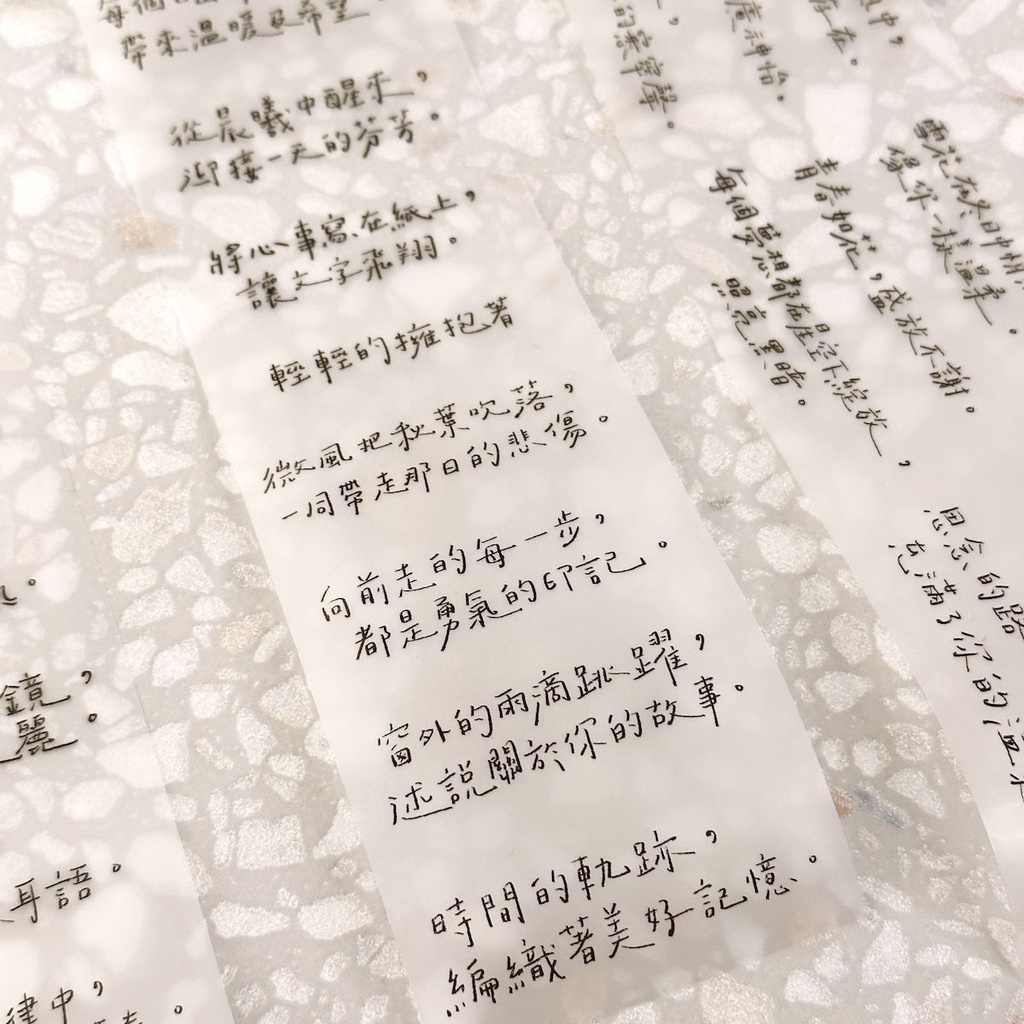 帶來溫暖及希望。
從晨曦中醒來，
迎接一天的芬芳。
將心事寫在紙上，
讓文字飛翔。
輕輕的擁抱著
微風把秋葉吹落，
一同帶走那日的悲傷。
向前走的每一步，
都是勇氣的印記。
窗外的雨滴跳躍，
述說關於你的故事。
時間的軌跡，
編織著美好記憶。
中，
在。
神怡。
的
聲。
雪花在冬日中
像你一樣溫柔。
青春如花，盛放不謝。
每個夢想都在星空下綻放，
照亮黑暗。
思念的路
充滿了你的溫
鏡，
麗。
耳語。
律中，